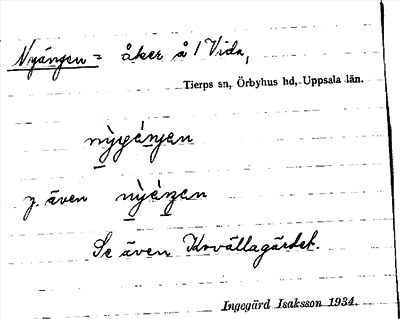 Nyängen = åker å 1 Vida,
Tierps sn, Örbyhus hd, Uppsala län.
nỳgánjen
y. även nỳánjen
Se även Kovällagärdet.
Ingegärd Isaksson 1934.